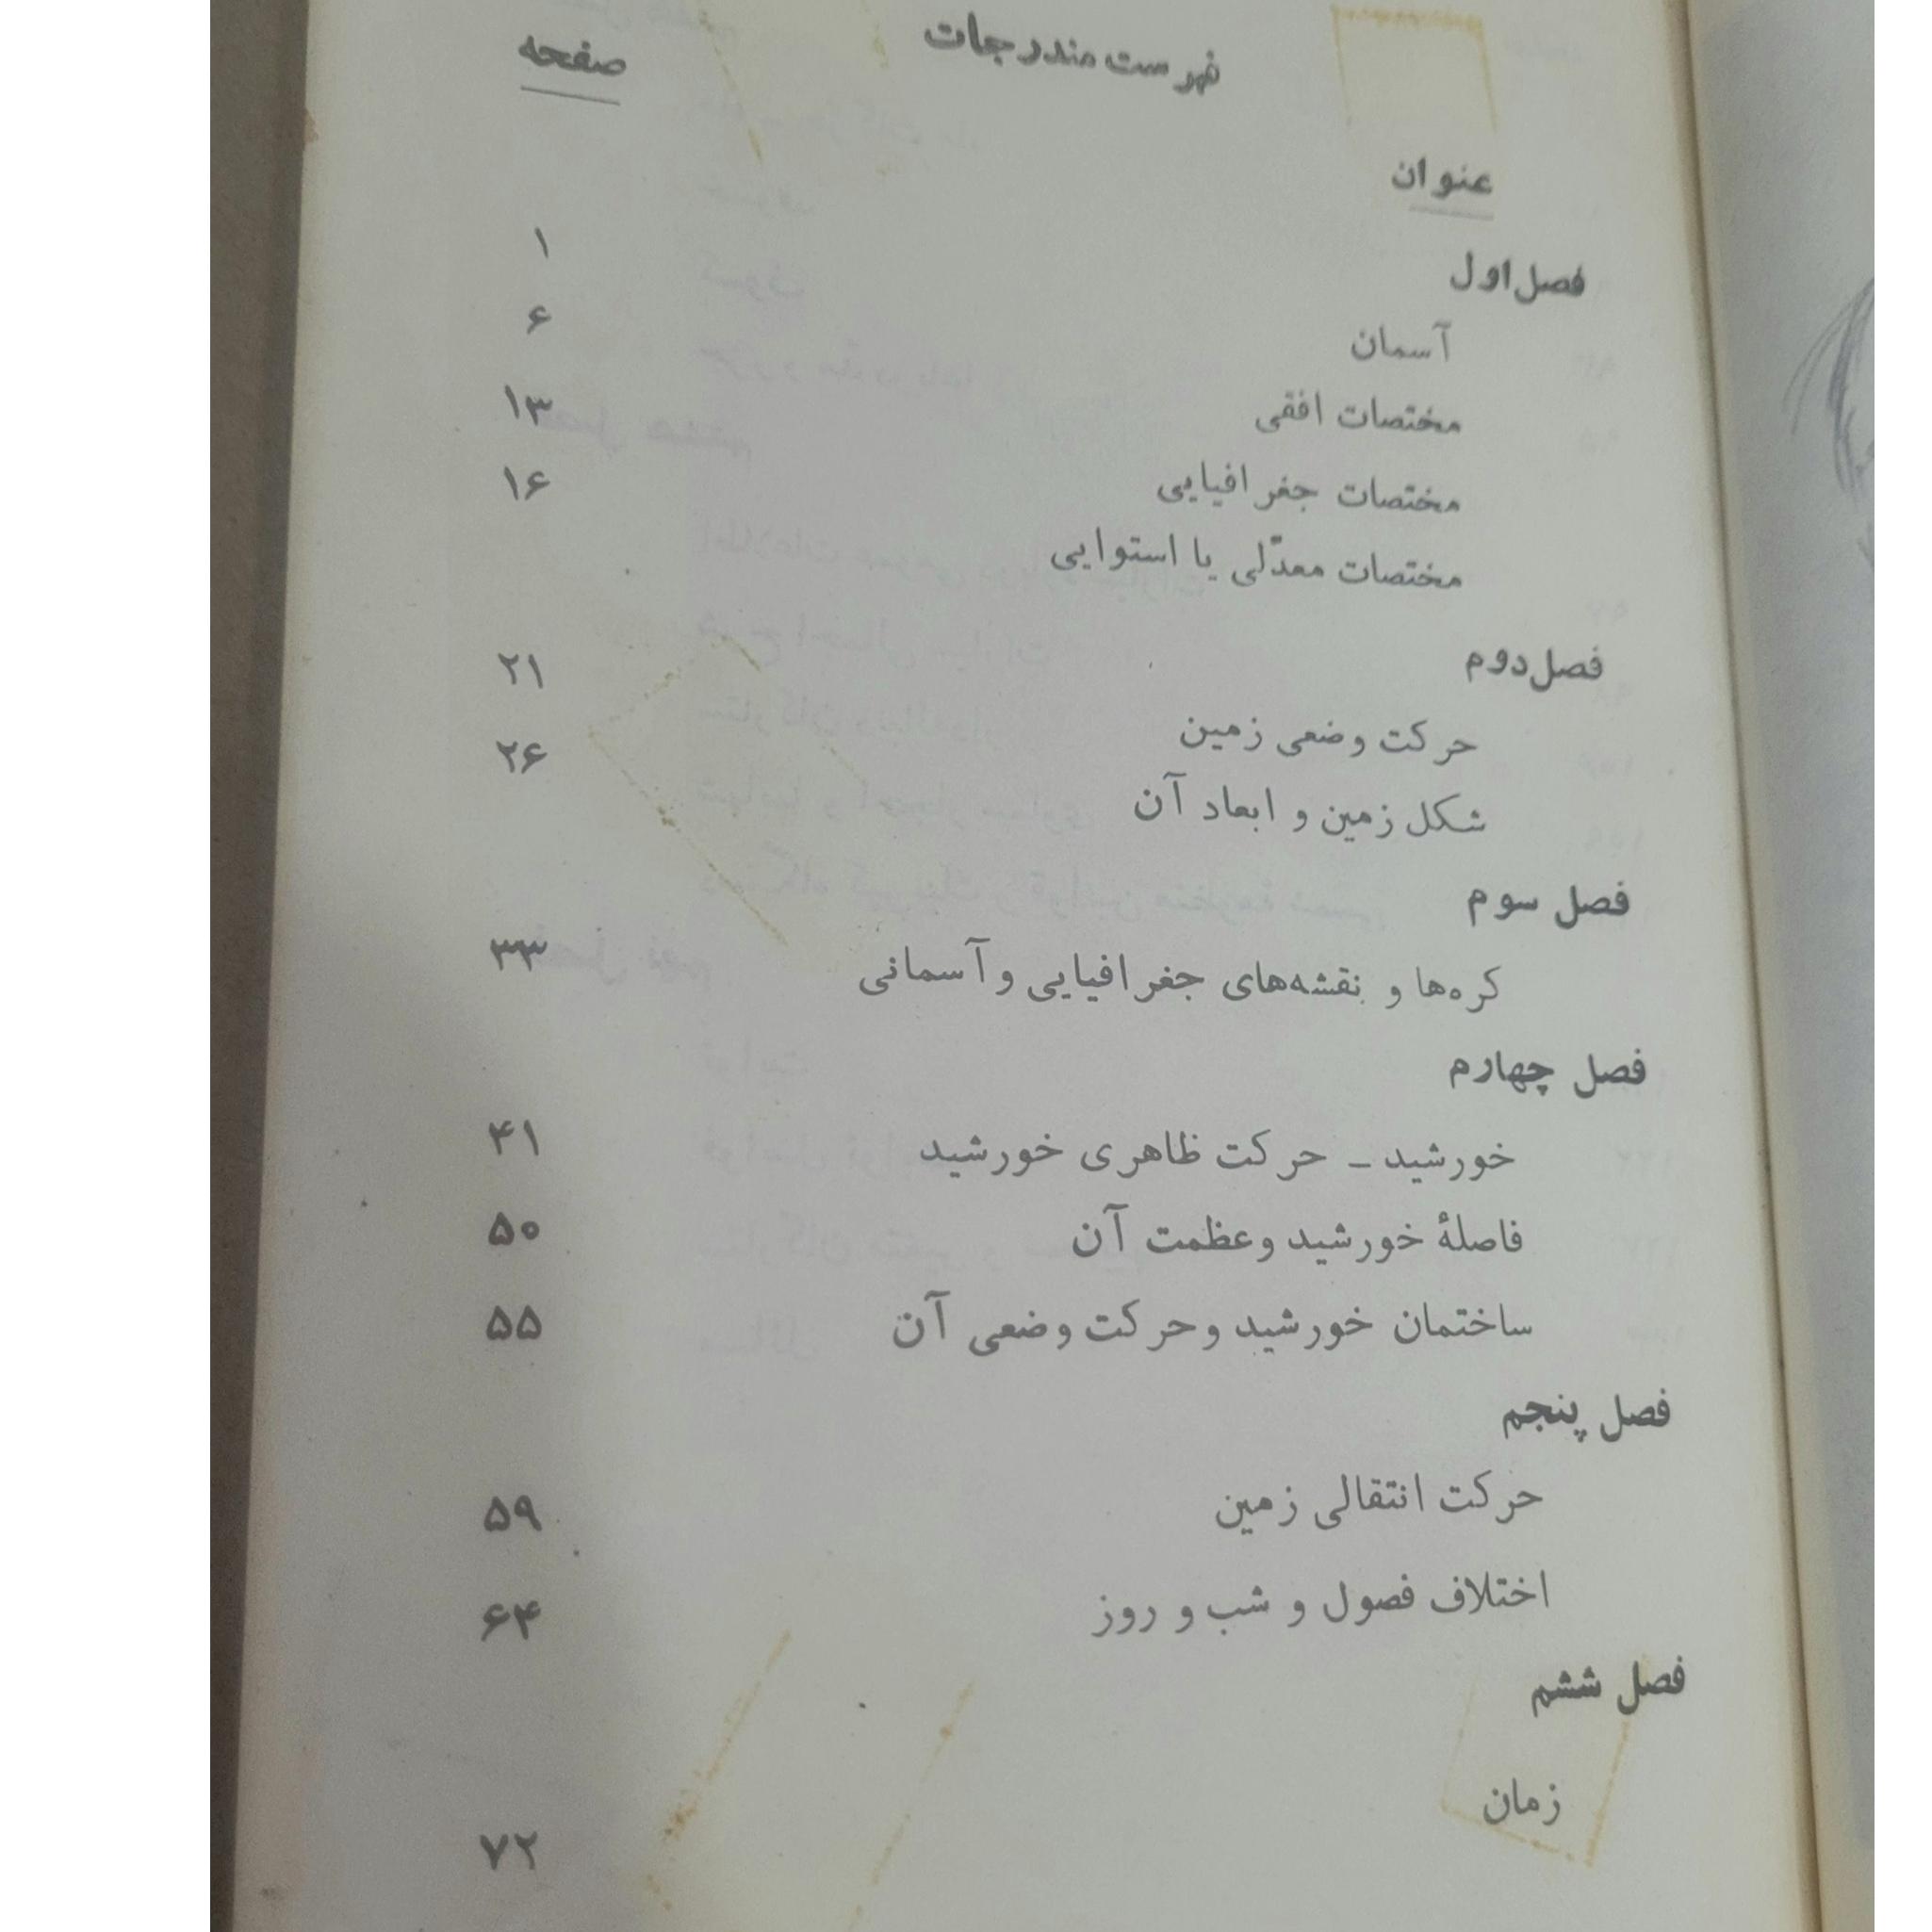 فهرست مندرجات
صفحه
عنوان
فصل اول
آسمان ۱
مختصات افقی ۶
مختصات جغرافیایی ۱۳
مختصات معدّلی یا استوایی ۱۶
فصل دوم
حرکت وضعی زمین ۲۱
شکل زمین و ابعاد آن ۲۶
فصل سوم
کره‌ها و نقشه‌های جغرافیایی و آسمانی ۳۳
فصل چهارم
خورشید ـ حرکت ظاهری خورشید ۴۱
فاصلهٔ خورشید و عظمت آن ۵۰
ساختمان خورشید و حرکت وضعی آن ۵۵
فصل پنجم
حرکت انتقالی زمین ۵۹
اختلاف فصول و شب و روز ۶۴
فصل ششم
زمان ۷۲